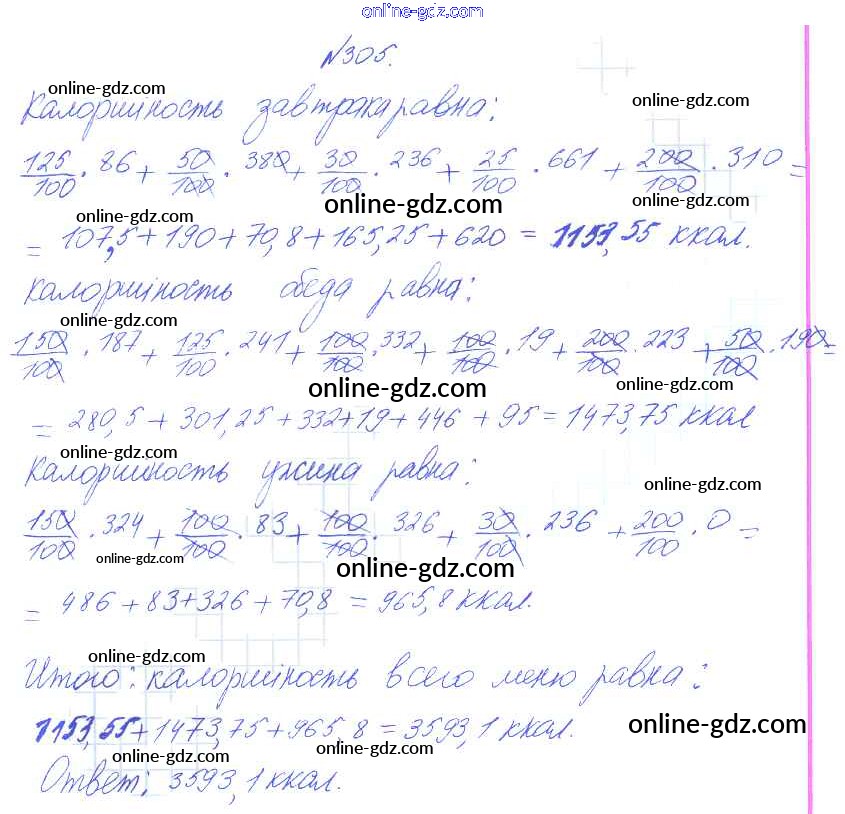 online-gdz.com
№305.
online-gdz.com
Калорийность завтрака равна:
online-gdz.com
125/100 · 86 + 50/100 · 380 + 30/100 · 236 + 25/100 · 661 + 200/100 · 310 =
online-gdz.com online-gdz.com online-gdz.com
= 107,5 + 190 + 70,8 + 165,25 + 620 = 1153,55 ккал.
Калорийность обеда равна:
online-gdz.com online-gdz.com
150/100 · 187 + 125/100 · 241 + 100/100 · 332 + 100/100 · 19 + 200/100 · 223 + 50/100 · 190 =
online-gdz.com online-gdz.com
= 280,5 + 301,25 + 332 + 19 + 446 + 95 = 1473,75 ккал
online-gdz.com
Калорийность ужина равна:
online-gdz.com
150/100 · 324 + 100/100 · 83 + 100/100 · 326 + 30/100 · 236 + 200/100 · 0 =
online-gdz.com online-gdz.com online-gdz.com
= 486 + 83 + 326 + 70,8 = 965,8 ккал.
online-gdz.com
Итого: калорийность всего меню равна:
1153,55 + 1473,75 + 965,8 = 3593,1 ккал.
online-gdz.com
online-gdz.com online-gdz.com
Ответ: 3593,1 ккал.